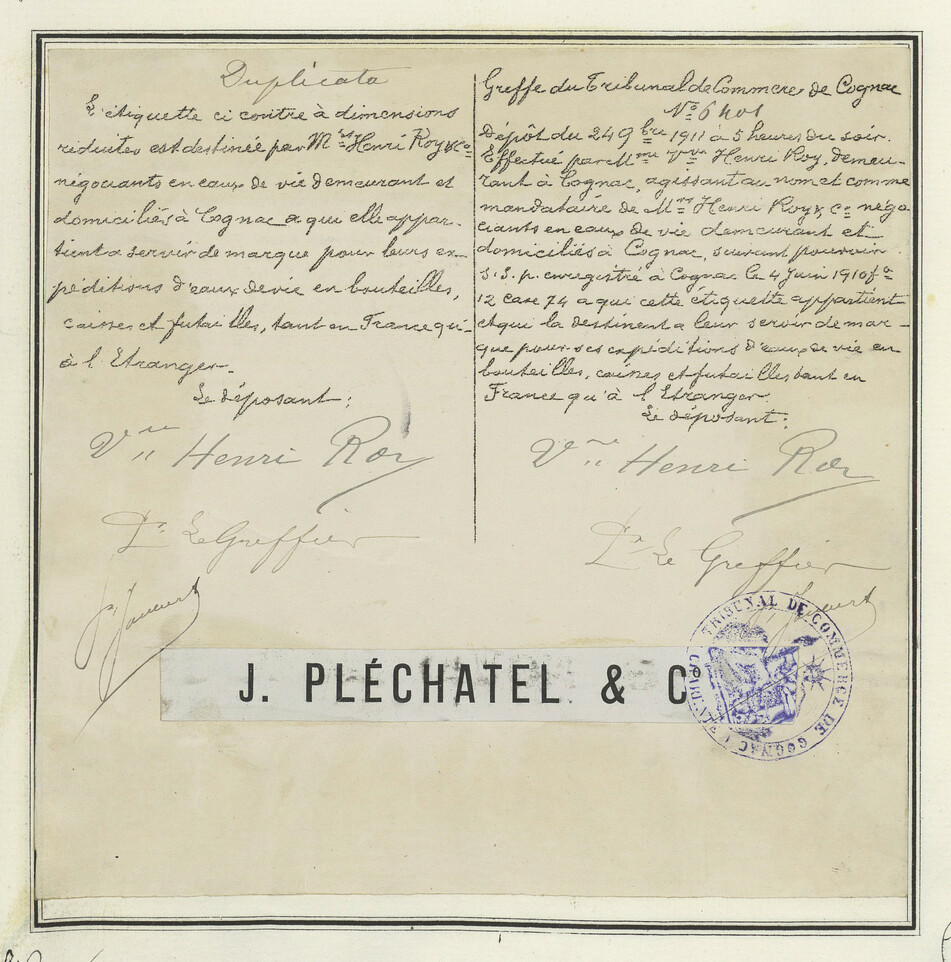 Duplicata
L'étiquette ci contre à dimensions
réduites est destinée par Mrs Henri Roy & Co
négociants en eaux de vie demeurant et
domiciliés à Cognac a que elle appar-
tient a servir de marque pour leurs ex-
péditions d'eaux de vie en bouteilles,
caisses et futailles, tant en France qu'
à l'Etranger.
Le déposant :
Vve Henri Roy
Pr Le Greffier
Greffe du Tribunal de Commerce de Cognac
No 6401
Dépôt du 24 9bre 1911 à 5 heures du soir.
Effectué par Mme Vve Henri Roy, demeu-
rant à Cognac, agissant au nom et comme
mandataire de Mrs Henri Roy & Co négo
ciants en eaux de vie demeurant et
domiciliés à Cognac, suivant pouvoir
s.s.p. enregistré à Cognac le 4 Juin 1910 fo
12 case 74 a qui cette étiquette appartient
et qui la destinent a leur servir de mar-
que pour ses expéditions d'eaux de vie en
bouteilles, caisses et futailles tant en
France qu'à l'Etranger.
Le déposant :
Vve Henri Roy
Pr Le Greffier
J. PLÉCHATEL & Co
TRIBUNAL DE COMMERCE DE COGNAC